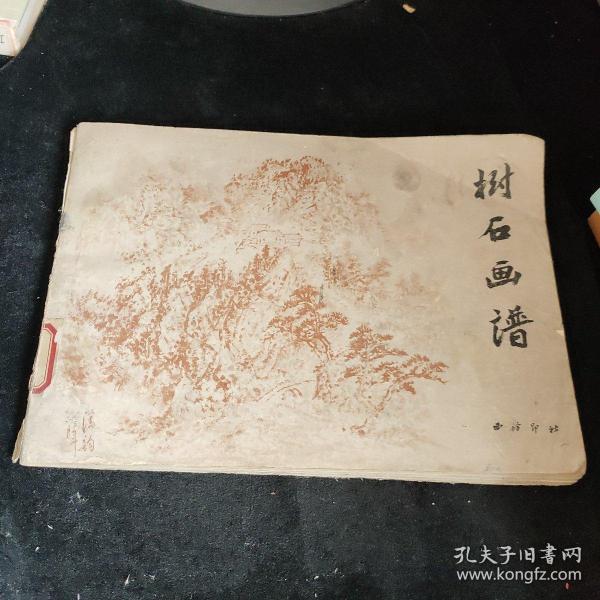 树石画谱
西泠印社
孔夫子旧书网
www.kongfz.com